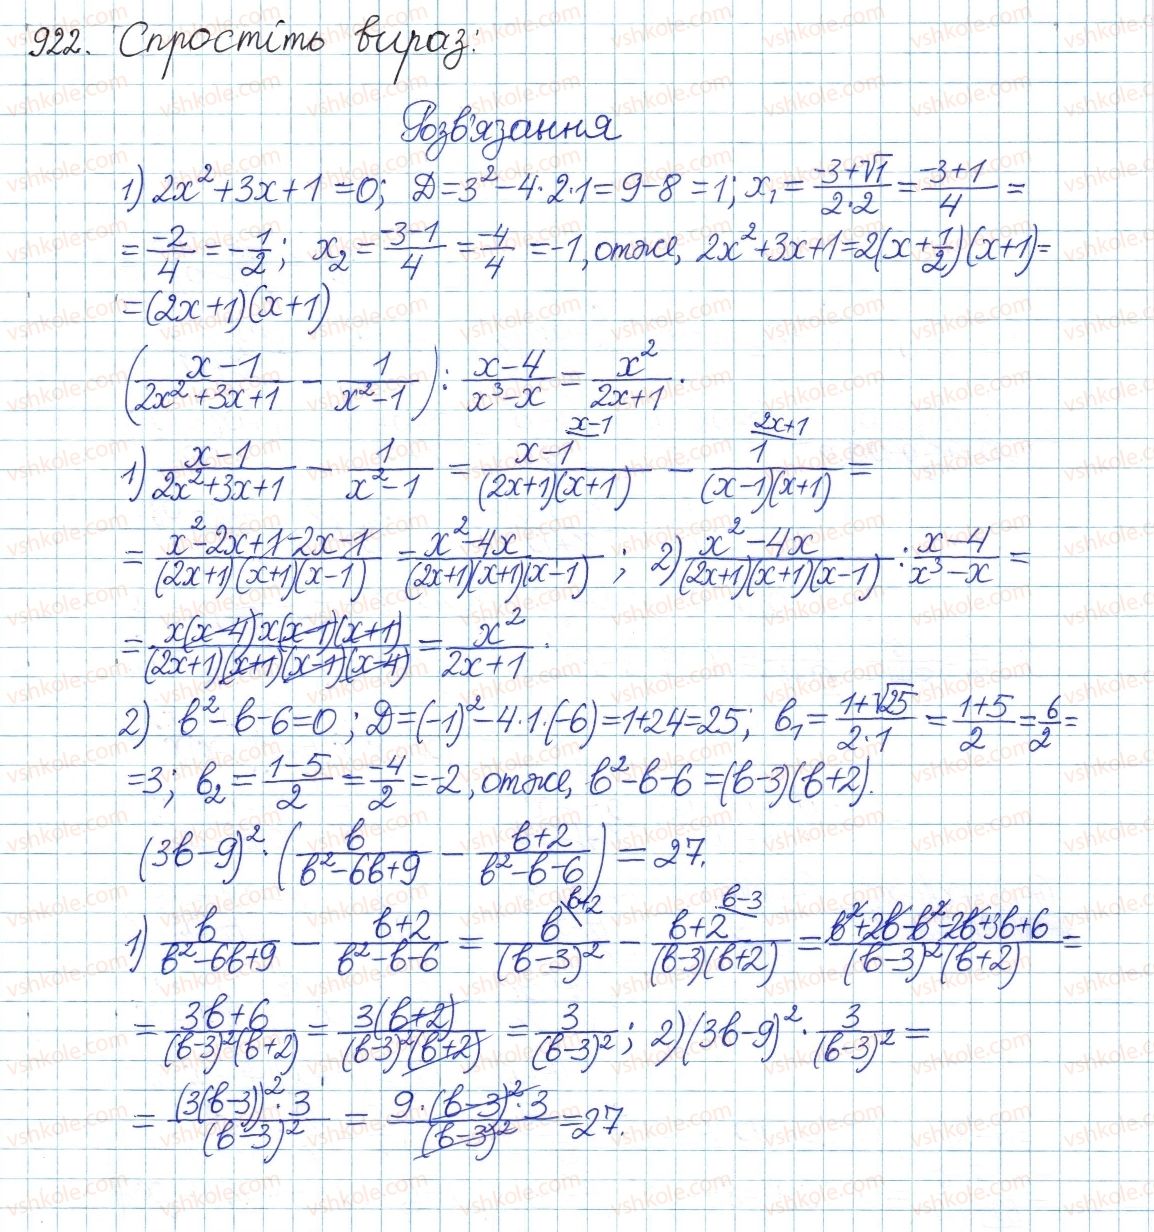 922. Спростіть вираз:
Розв'язання
1) 2x²+3x+1=0; D=3²-4·2·1=9-8=1; x₁=(-3+√1)/(2·2)=(-3+1)/4=
=-2/4=-1/2; x₂=(-3-1)/4=-4/4=-1, отже, 2x²+3x+1=2(x+1/2)(x+1)=
=(2x+1)(x+1)
((x-1)/(2x²+3x+1) - 1/(x²-1)) : (x-4)/(x³-x) = x²/(2x+1).
1) (x-1)/(2x²+3x+1) - 1/(x²-1) = (x-1)/((2x+1)(x+1)) x-1 - 1/((x-1)(x+1)) 2x+1 =
= (x²-2x+1-2x-1)/((2x+1)(x+1)(x-1)) = (x²-4x)/((2x+1)(x+1)(x-1)); 2) (x²-4x)/((2x+1)(x+1)(x-1)) : (x-4)/(x³-x) =
= (x(x-4)x(x-1)(x+1))/((2x+1)(x+1)(x-1)(x-4)) = x²/(2x+1).
2) b²-b-6=0; D=(-1)²-4·1·(-6)=1+24=25; b₁=(1+√25)/(2·1)=(1+5)/2=6/2=
=3; b₂=(1-5)/2=-4/2=-2, отже, b²-b-6=(b-3)(b+2).
(3b-9)²·(b/(b²-6b+9) - (b+2)/(b²-b-6)) = 27.
1) b/(b²-6b+9) - (b+2)/(b²-b-6) = b/(b-3)² b+2 - (b+2)/((b-3)(b+2)) b-3 = (b²+2b-b²-2b+3b+6)/((b-3)²(b+2)) =
= (3b+6)/((b-3)²(b+2)) = (3(b+2))/((b-3)²(b+2)) = 3/(b-3)²; 2) (3b-9)²·3/(b-3)² =
= ((3(b-3))²·3)/(b-3)² = (9·(b-3)²·3)/(b-3)² = 27.